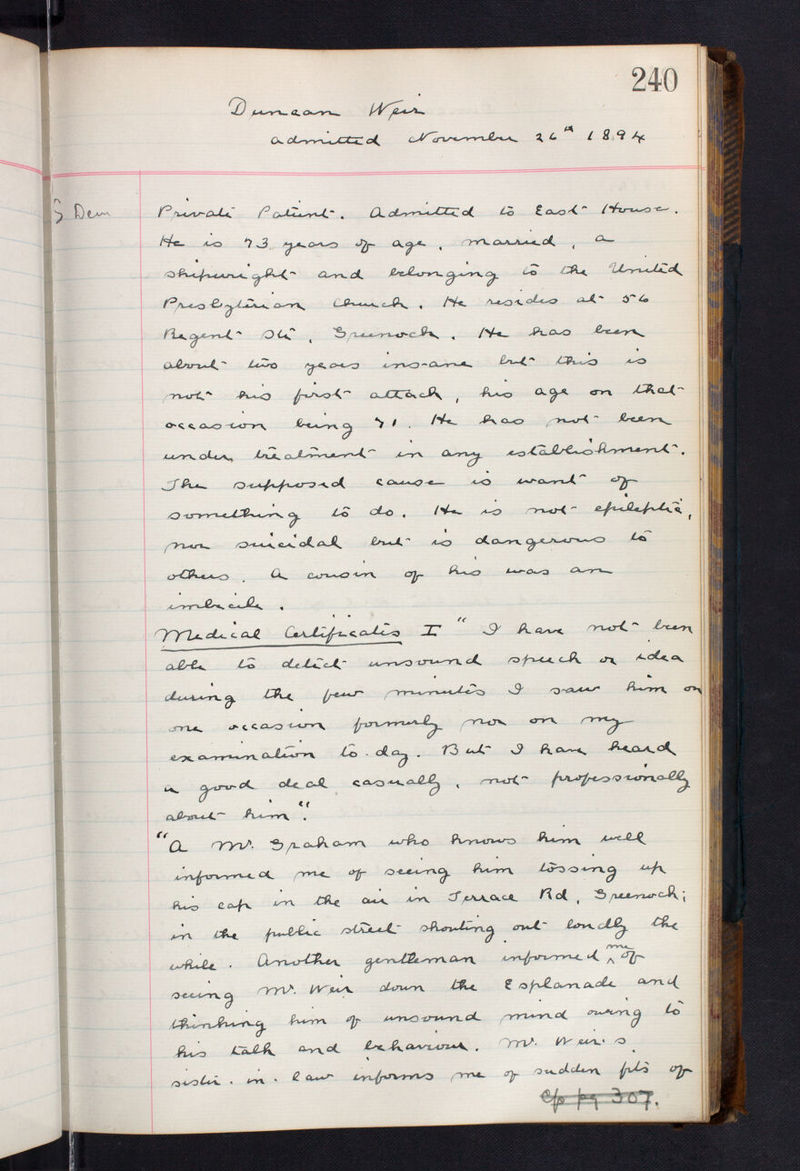 240
Duncan Weir
admitted November 26th 1894
Dem
Private Patient. Admitted to East House.
He is 73 years of age, married, a
shipwright and belonging to the United
Presbyterian Church. He resides at 56
Regent St, Greenock. He has been
about two years insane but this is
not his first attack, his age on that
occasion being 71. He has not been
under treatment in any establishment.
The supposed cause is want of
something to do. He is not epileptic,
nor suicidal but is dangerous to
others. A cousin of his was an
imbecile.
Medical Certificates I "I have not been
able to detect unsound speech or idea
during the few minutes I saw him on
one occasion formerly nor on my
examination to-day. But I have heard
a good deal casually, not professionally
about him".
"A Mr. Graham who knows him well
informed me of seeing him tossing up
his cap in the air in Terrace Rd, Greenock;
in the public street shouting out loudly the
while. Another gentleman informed me of
seeing Mr. Weir down the Esplanade and
thinking him of unsound mind owing to
his talk and behaviour. Mr. Weir's
sister-in-law informs me of sudden fits of
c/o pg 307.